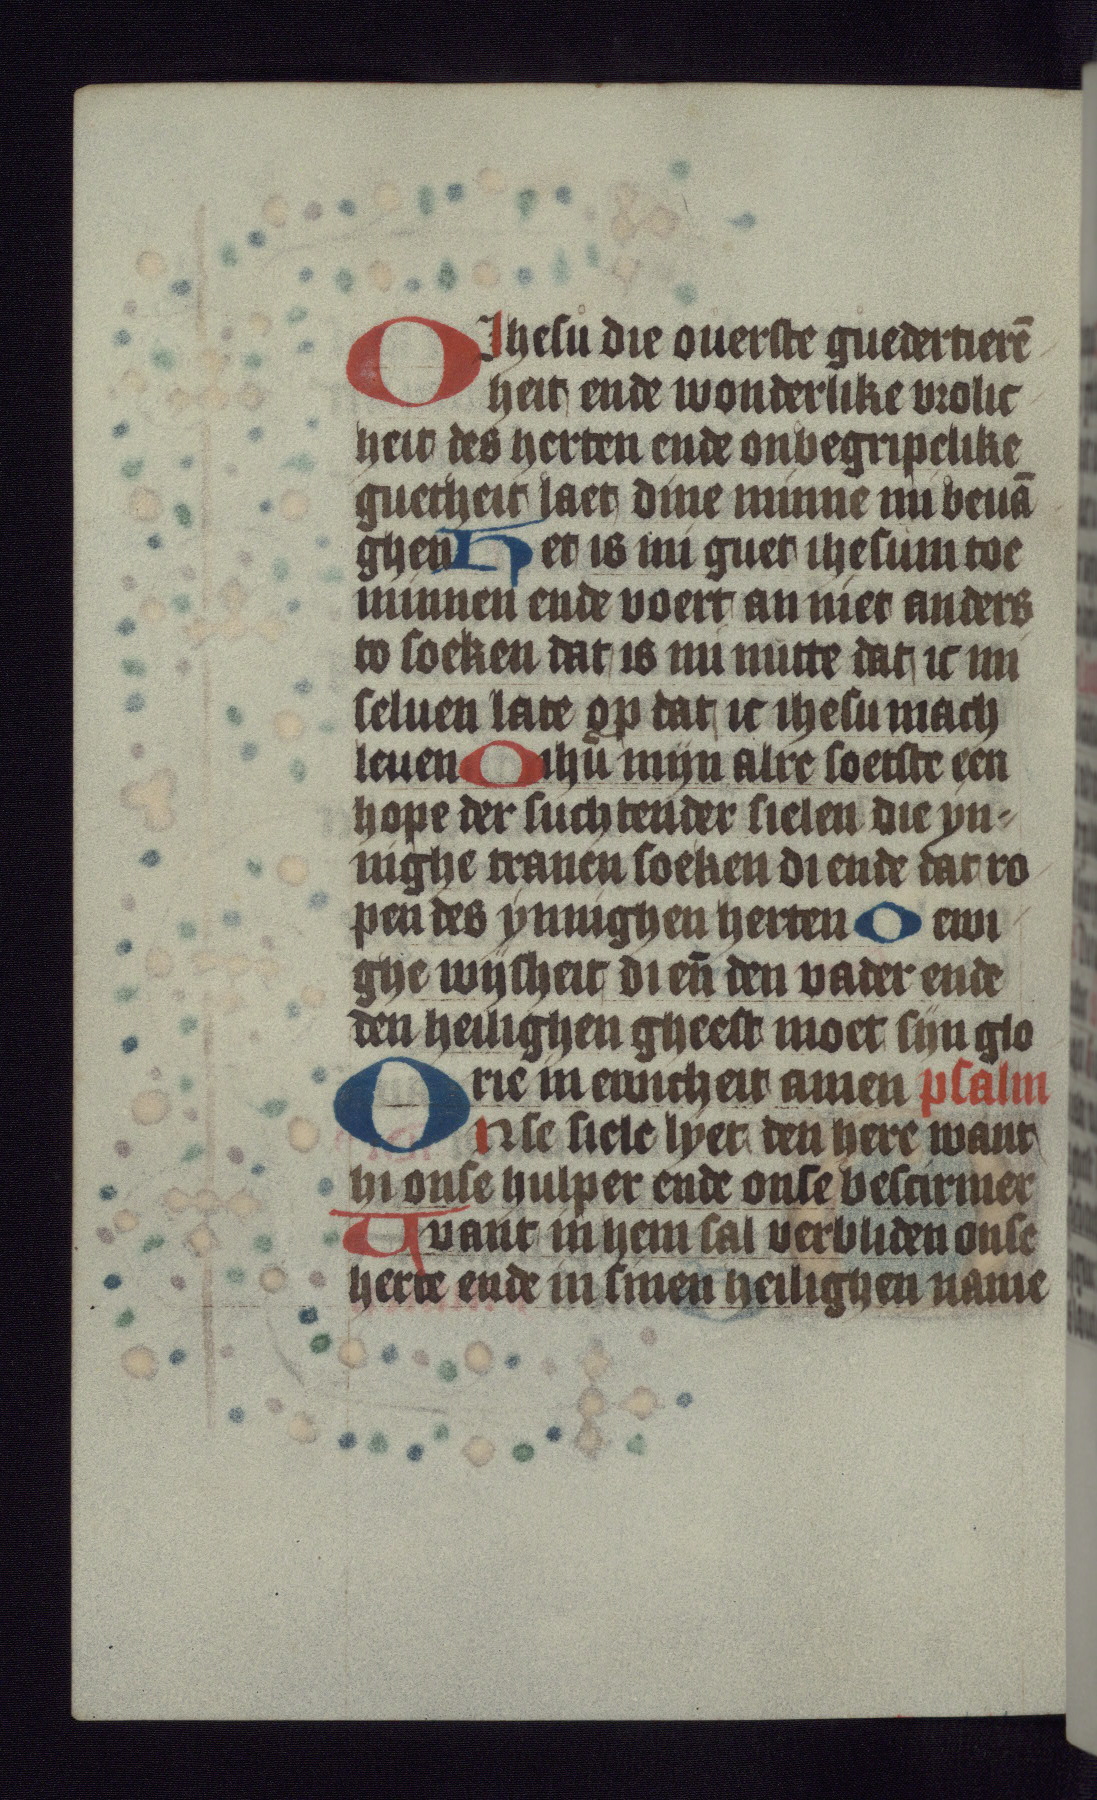 O Ihesu die ouerste guedertierē
heit ende wonderlike vrolic
heit des herten ende onbegripelike
guetheit laet dine minne mi beuā
ghen Het is mi guet ihesum toe
minnen ende voert an niet anders
to soeken dat is mi nutte dat ic mi
seluen late op dat ic ihesu mach
leuen O ihū mijn alre soetste een
hope der suchtender sielen die yn-
nighe tranen soeken di ende dat ro
pen des ynnighen herten O ewi
ghe wijsheit di eñ den vader ende
den heilighen gheest moet sijn glo
rie in ewicheit amen psalm
Onse siele lyet den here want
hi onse hulper ende onse bescirmer
Want in hem sal verbliden onse
herte ende in sinen heilighen name